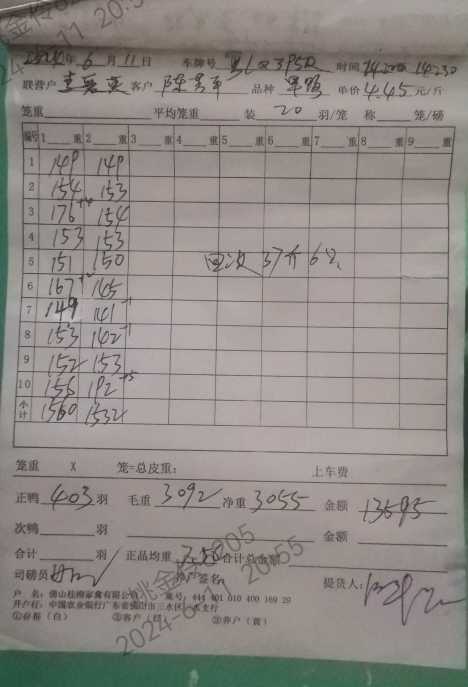 2024年6月11日 车牌号 时间 14:20 14:30
联营户 客户 品种 单价 4.45 元/斤
笼重 平均笼重 装 20 羽/笼 称 笼/磅
编号 1 重 2 重 3 重 4 重 5 重 6 重 7 重 8 重 9 重
1 149 149
2 154 153
3 176 154
4 153 153
5 151 150
6 167 145
7 149 141-1
8 153 142-1
9 152 153
10 156 192
小计 1560 1532
37斤
笼重 X 笼=总皮重: 上车费
正鸭 403 羽 毛重 3092 净重 3055 金额 13595
次鸭 羽 金额
合计 羽 正品均重 7.58 合计总金额
司磅员 养户签名: 提货人:
户 名: 佛山桂柳家禽有限公司 账号: 444 401 010 400 169 29
开户行: 中国农业银行广东省佛山市三水区 支行
①存根(白) ②客户(红) ③养户(黄)